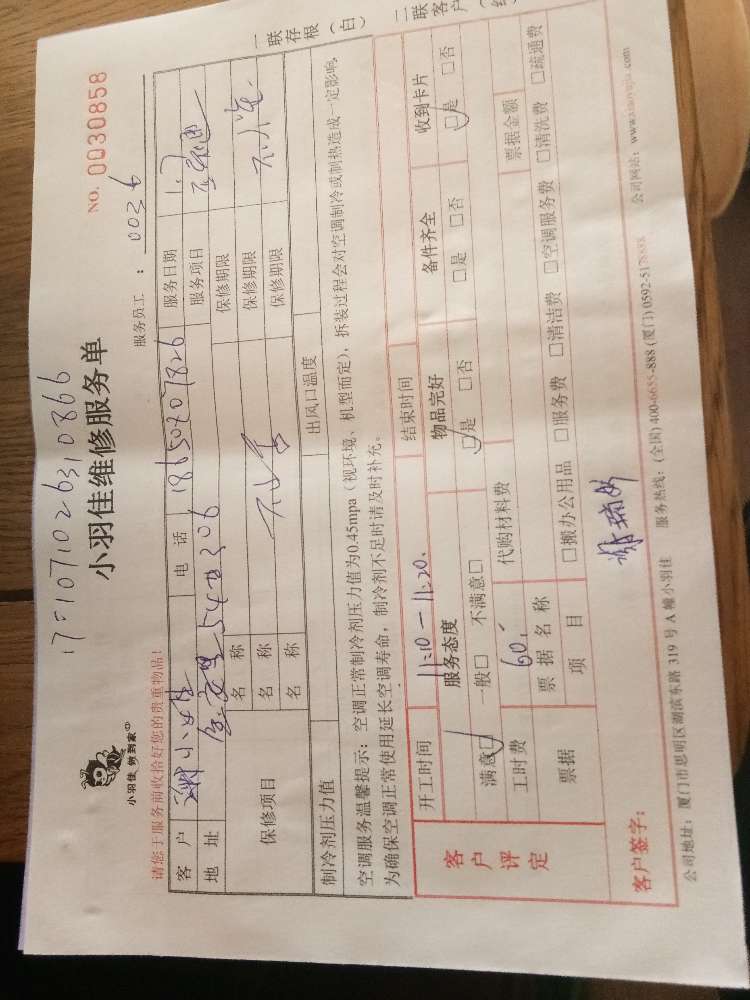 17-10710263110866
小羽佳维修服务单
NO. 0030858
小羽佳 做到家
请您于服务前收拾好您的贵重物品!
服务员工: 0026
客户 小姐 电话 18650207826 服务日期 1.7
地址 54#306 服务项目
保修项目 名称 保修期限
名称 保修期限
名称 保修期限
制冷剂压力值 出风口温度
空调服务温馨提示:空调正常制冷剂压力值为0.45mpa(视环境、机型而定),拆装过程会对空调制冷或制热造成一定影响,
为确保空调正常使用延长空调寿命,制冷剂不足时请及时补充。
一联存根(白)
二联客户
客户评定
开工时间 11:10-11:20. 结束时间
服务态度 物品完好 备件齐全 收到卡片
满意□ 一般□ 不满意□ □是 □否 □是 □否 □是 □否
工时费 60.- 代购材料费 票据金额
票据 票据名称
项目 □搬办公用品 □服务费 □清洁费 □空调服务费 □清洗费 □疏通费
客户签字:
公司地址:厦门市思明区湖滨东路 319 号 A 幢小羽佳 服务热线:(全国) 400-6655-888 (厦门) 0592-5178888 公司网站:www.xiaoyujia.com